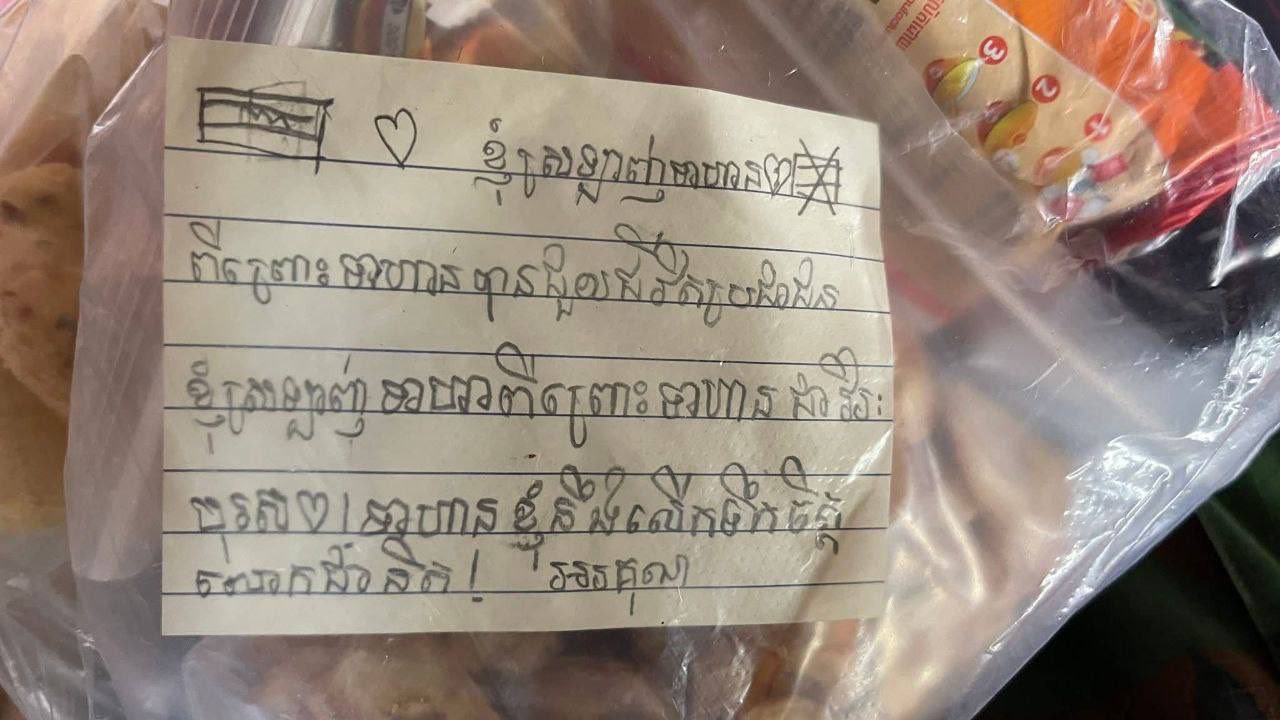 ខ្ញុំស្រឡាញ់ទាហាន
ពីព្រោះទាហានបានជួយជីវិតប្រជាជន
ខ្ញុំស្រឡាញ់ទាហាពីព្រោះទាហានជាវីរៈ
បុរស។ ទាហានខ្ញុំនឹងលើកទឹកចិត្ត
លោកជានិត! អរគុណ
3
2
1